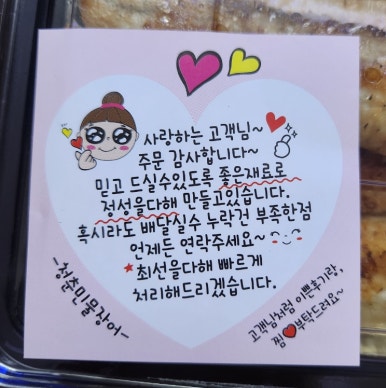 사랑하는 고객님~
주문 감사합니다~
믿고 드실수있도록 좋은재료로
정성을다해 만들고있습니다.
혹시라도 배달실수 누락건 부족한점
언제든 연락주세요~
★최선을다해 빠르게
처리해드리겠습니다.
-청춘민물장어-
고객님처럼 이쁜후기랑,
찜♥부탁드려요~